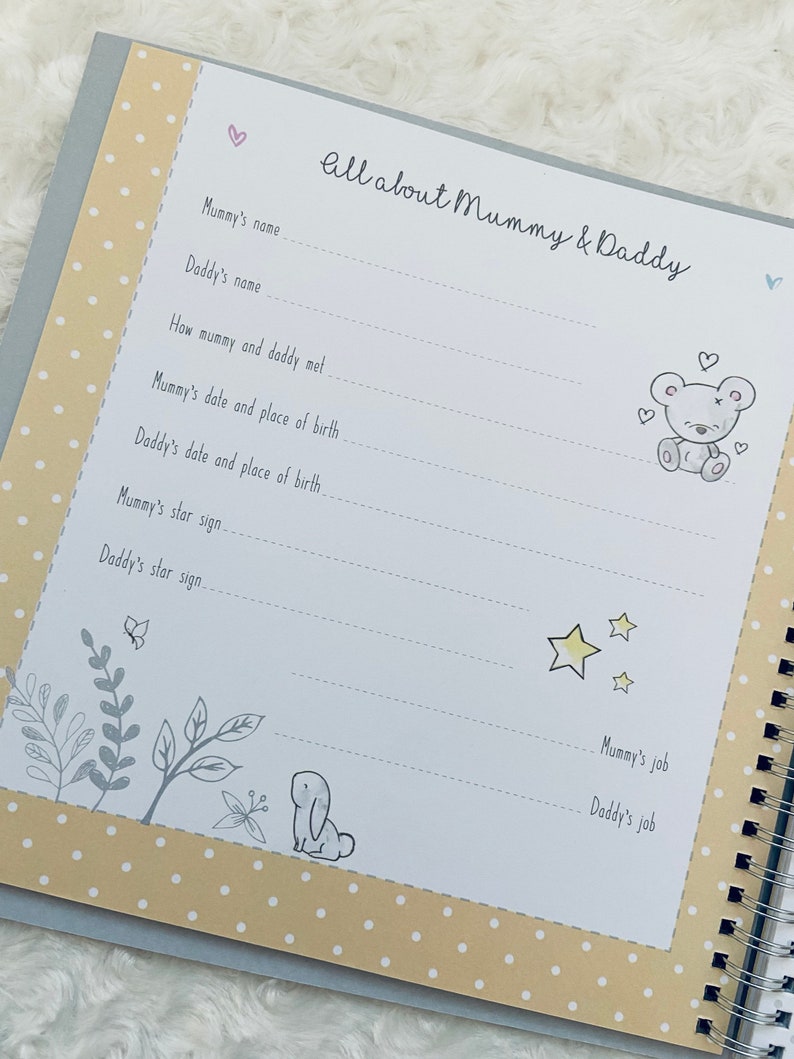 All about Mummy & Daddy
Mummy's name
Daddy's name
How mummy and daddy met
Mummy's date and place of birth
Daddy's date and place of birth
Mummy's star sign
Daddy's star sign
Mummy's job
Daddy's job